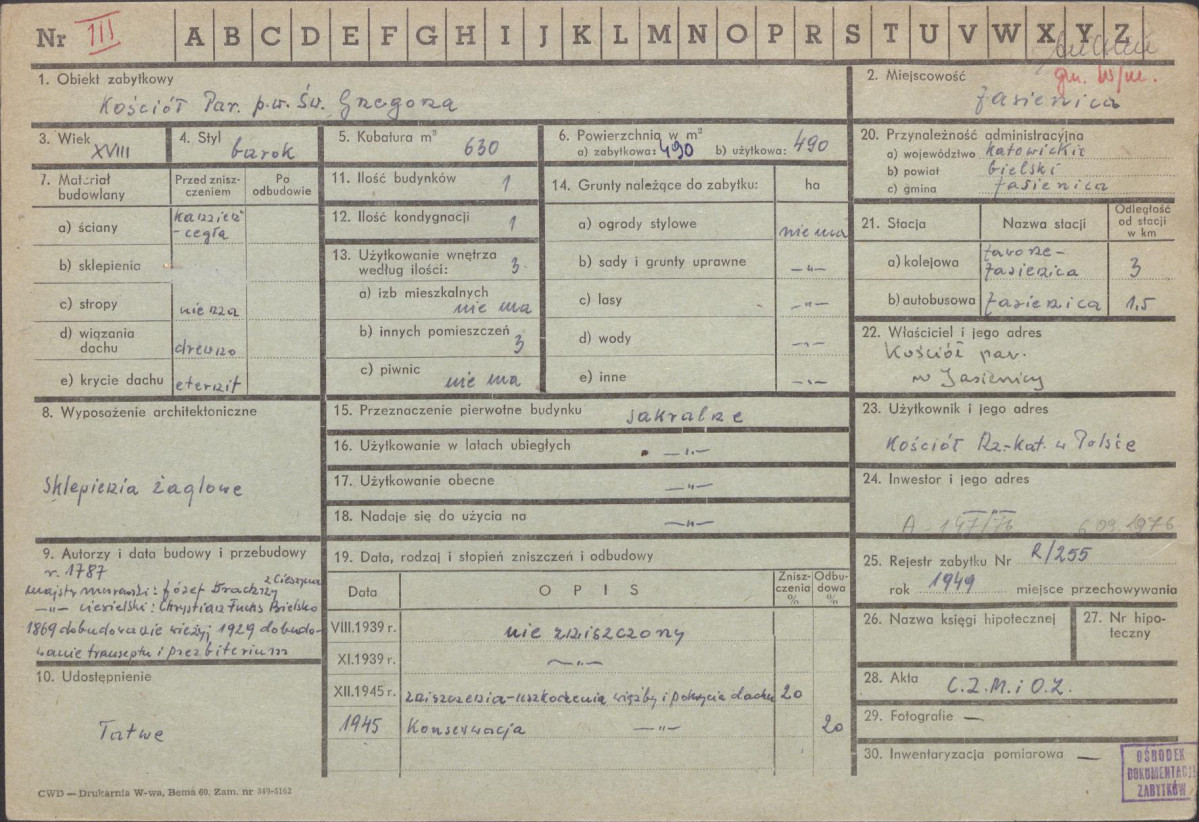 Nr III A B C D E F G H I J K L M N O P R S T U V W X Y Z
1. Obiekt zabytkowy
Kościół Par. p.w. Św. Grzegorza
2. Miejscowość
gm. w/m.
Jasienica
3. Wiek
XVIII
4. Styl
barok
5. Kubatura m³
630
6. Powierzchnia w m²
a) zabytkowa: 490 b) użytkowa: 490
20. Przynależność administracyjna
a) województwo katowickie
b) powiat bielski
c) gmina Jasienica
7. Materiał budowlany
Przed zniszczeniem
Po odbudowie
a) ściany
kamień
-cegła
b) sklepienia
c) stropy
nie ma
d) wiązania dachu
drewno
e) krycie dachu
eternit
11. Ilość budynków 1
12. Ilość kondygnacji 1
13. Użytkowanie wnętrza
według ilości: 3
a) izb mieszkalnych
nie ma
b) innych pomieszczeń
3
c) piwnic
nie ma
14. Grunty należące do zabytku: ha
a) ogrody stylowe nie ma
b) sady i grunty uprawne —„—
c) lasy —„—
d) wody —„—
e) inne —„—
21. Stacja
Nazwa stacji
Odległość od stacji w km
a) kolejowa
Jaworze-
Jasienica
3
b) autobusowa Jasienica 1,5
22. Właściciel i jego adres
Kościół par.
w Jasienicy
8. Wyposażenie architektoniczne
Sklepienia żaglowe
15. Przeznaczenie pierwotne budynku sakralne
16. Użytkowanie w latach ubiegłych —„—
17. Użytkowanie obecne —„—
18. Nadaje się do użycia na —„—
23. Użytkownik i jego adres
Kościół Rz.-Kat. w Polsce
24. Inwestor i jego adres
—„—
A-147/76 6.09.1976
9. Autorzy i data budowy i przebudowy
r. 1787
majstr murarski: Józef Drachny z Cieszyna
—„— ciesielski: Chrystian Fuchs Bielsko
1869 dobudowanie wieży, 1929 dobudo-
wanie transeptu i prezbiterium
10. Udostępnienie
Łatwe
19. Data, rodzaj i stopień zniszczeń i odbudowy
Data
OPIS
Zniszczenia %
Odbudowa %
VIII.1939 r. nie zniszczony
XI.1939 r. —„—
XII.1945 r. zniszczenia-uszkodzenia więźby i pokrycia dachu 20
1945 Konserwacja —„— 20
25. Rejestr zabytku Nr R/255
rok 1949 miejsce przechowywania
26. Nazwa księgi hipotecznej
27. Nr hipoteczny
28. Akta C.Z.M. i O.Z.
29. Fotografie —
30. Inwentaryzacja pomiarowa —
OŚRODEK
DOKUMENTACJI
ZABYTKÓW
CWD — Drukarnia W-wa, Bema 60. Zam. nr 349-5162